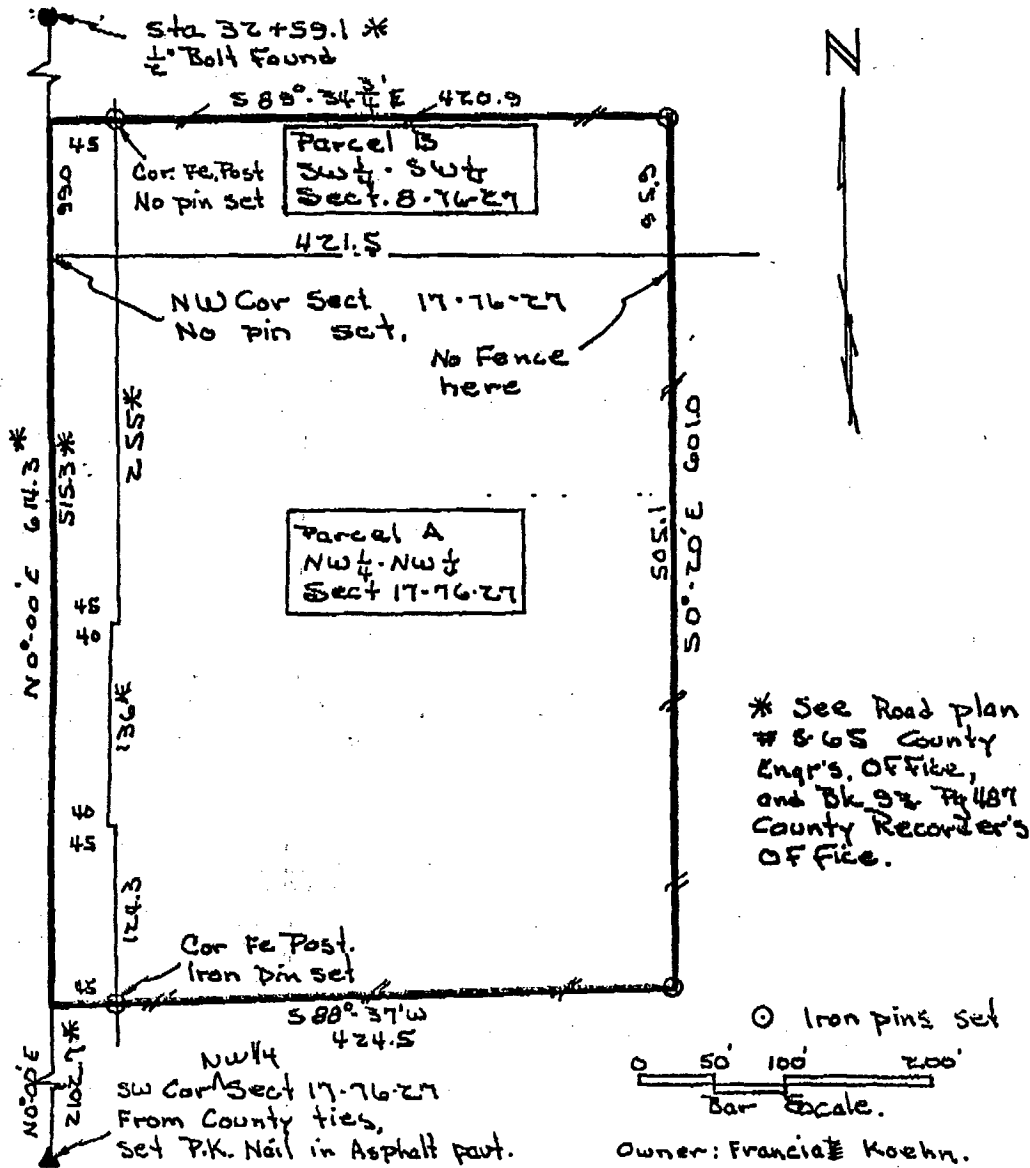 Sta 32+59.1 *
1/2" Bolt Found
N
S 89°-34 3/4' E 420.9
45
Cor. Fe. Post
No pin set
Parcel B
SW 1/4 - SW 1/4
Sect. 8-76-27
99.0
95.9
421.5
NW Cor Sect 17-76-27
No pin set.
No Fence
here
255*
N0°-00'E 614.3*
515.3*
Parcel A
NW 1/4 - NW 1/4
Sect 17-76-27
505.1
S0°-20'E 601.0
45
40
136*
40
45
* See Road plan
# 865 County
Engr's. Office,
and Bk 93 Pg 487
County Recorder's
Office.
124.3
Cor Fe Post.
Iron pin set
45
S 88°-37'W
424.5
⊙ Iron pins set
N0°00'E
2102.7*
NW 1/4
SW Cor ^ Sect 17-76-27
From County ties,
Set P.K. Nail in Asphalt pavt.
0 50' 100' 200'
Bar Scale.
Owner: Francis Koehn.